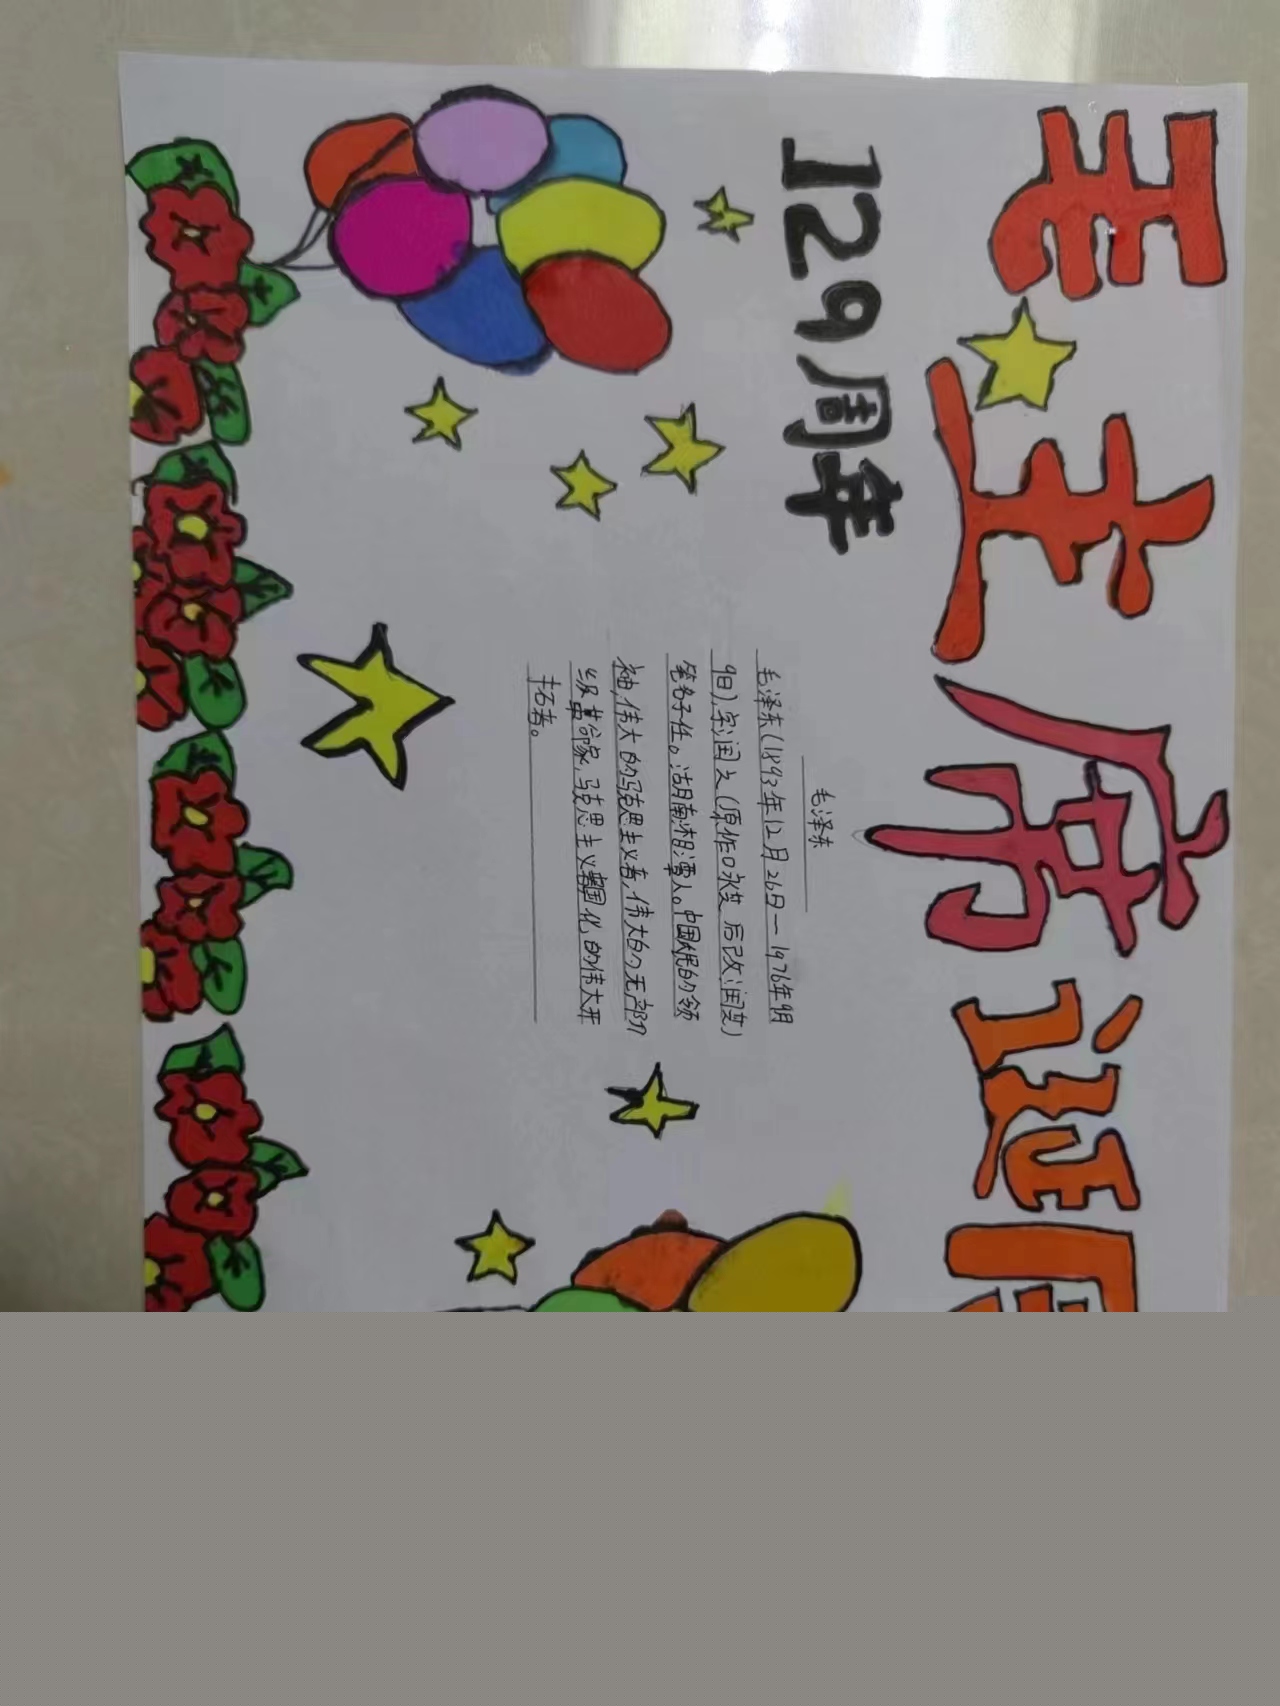 毛主席诞
129周年
毛泽东
毛泽东(1893年12月26日—1976年9月
9日),字润之(原作咏芝,后改润芝)
笔名子任。湖南湘潭人。中国人民的领
袖,伟大的马克思主义者,伟大的无产阶
级革命家,马克思主义中国化的伟大开
拓者。